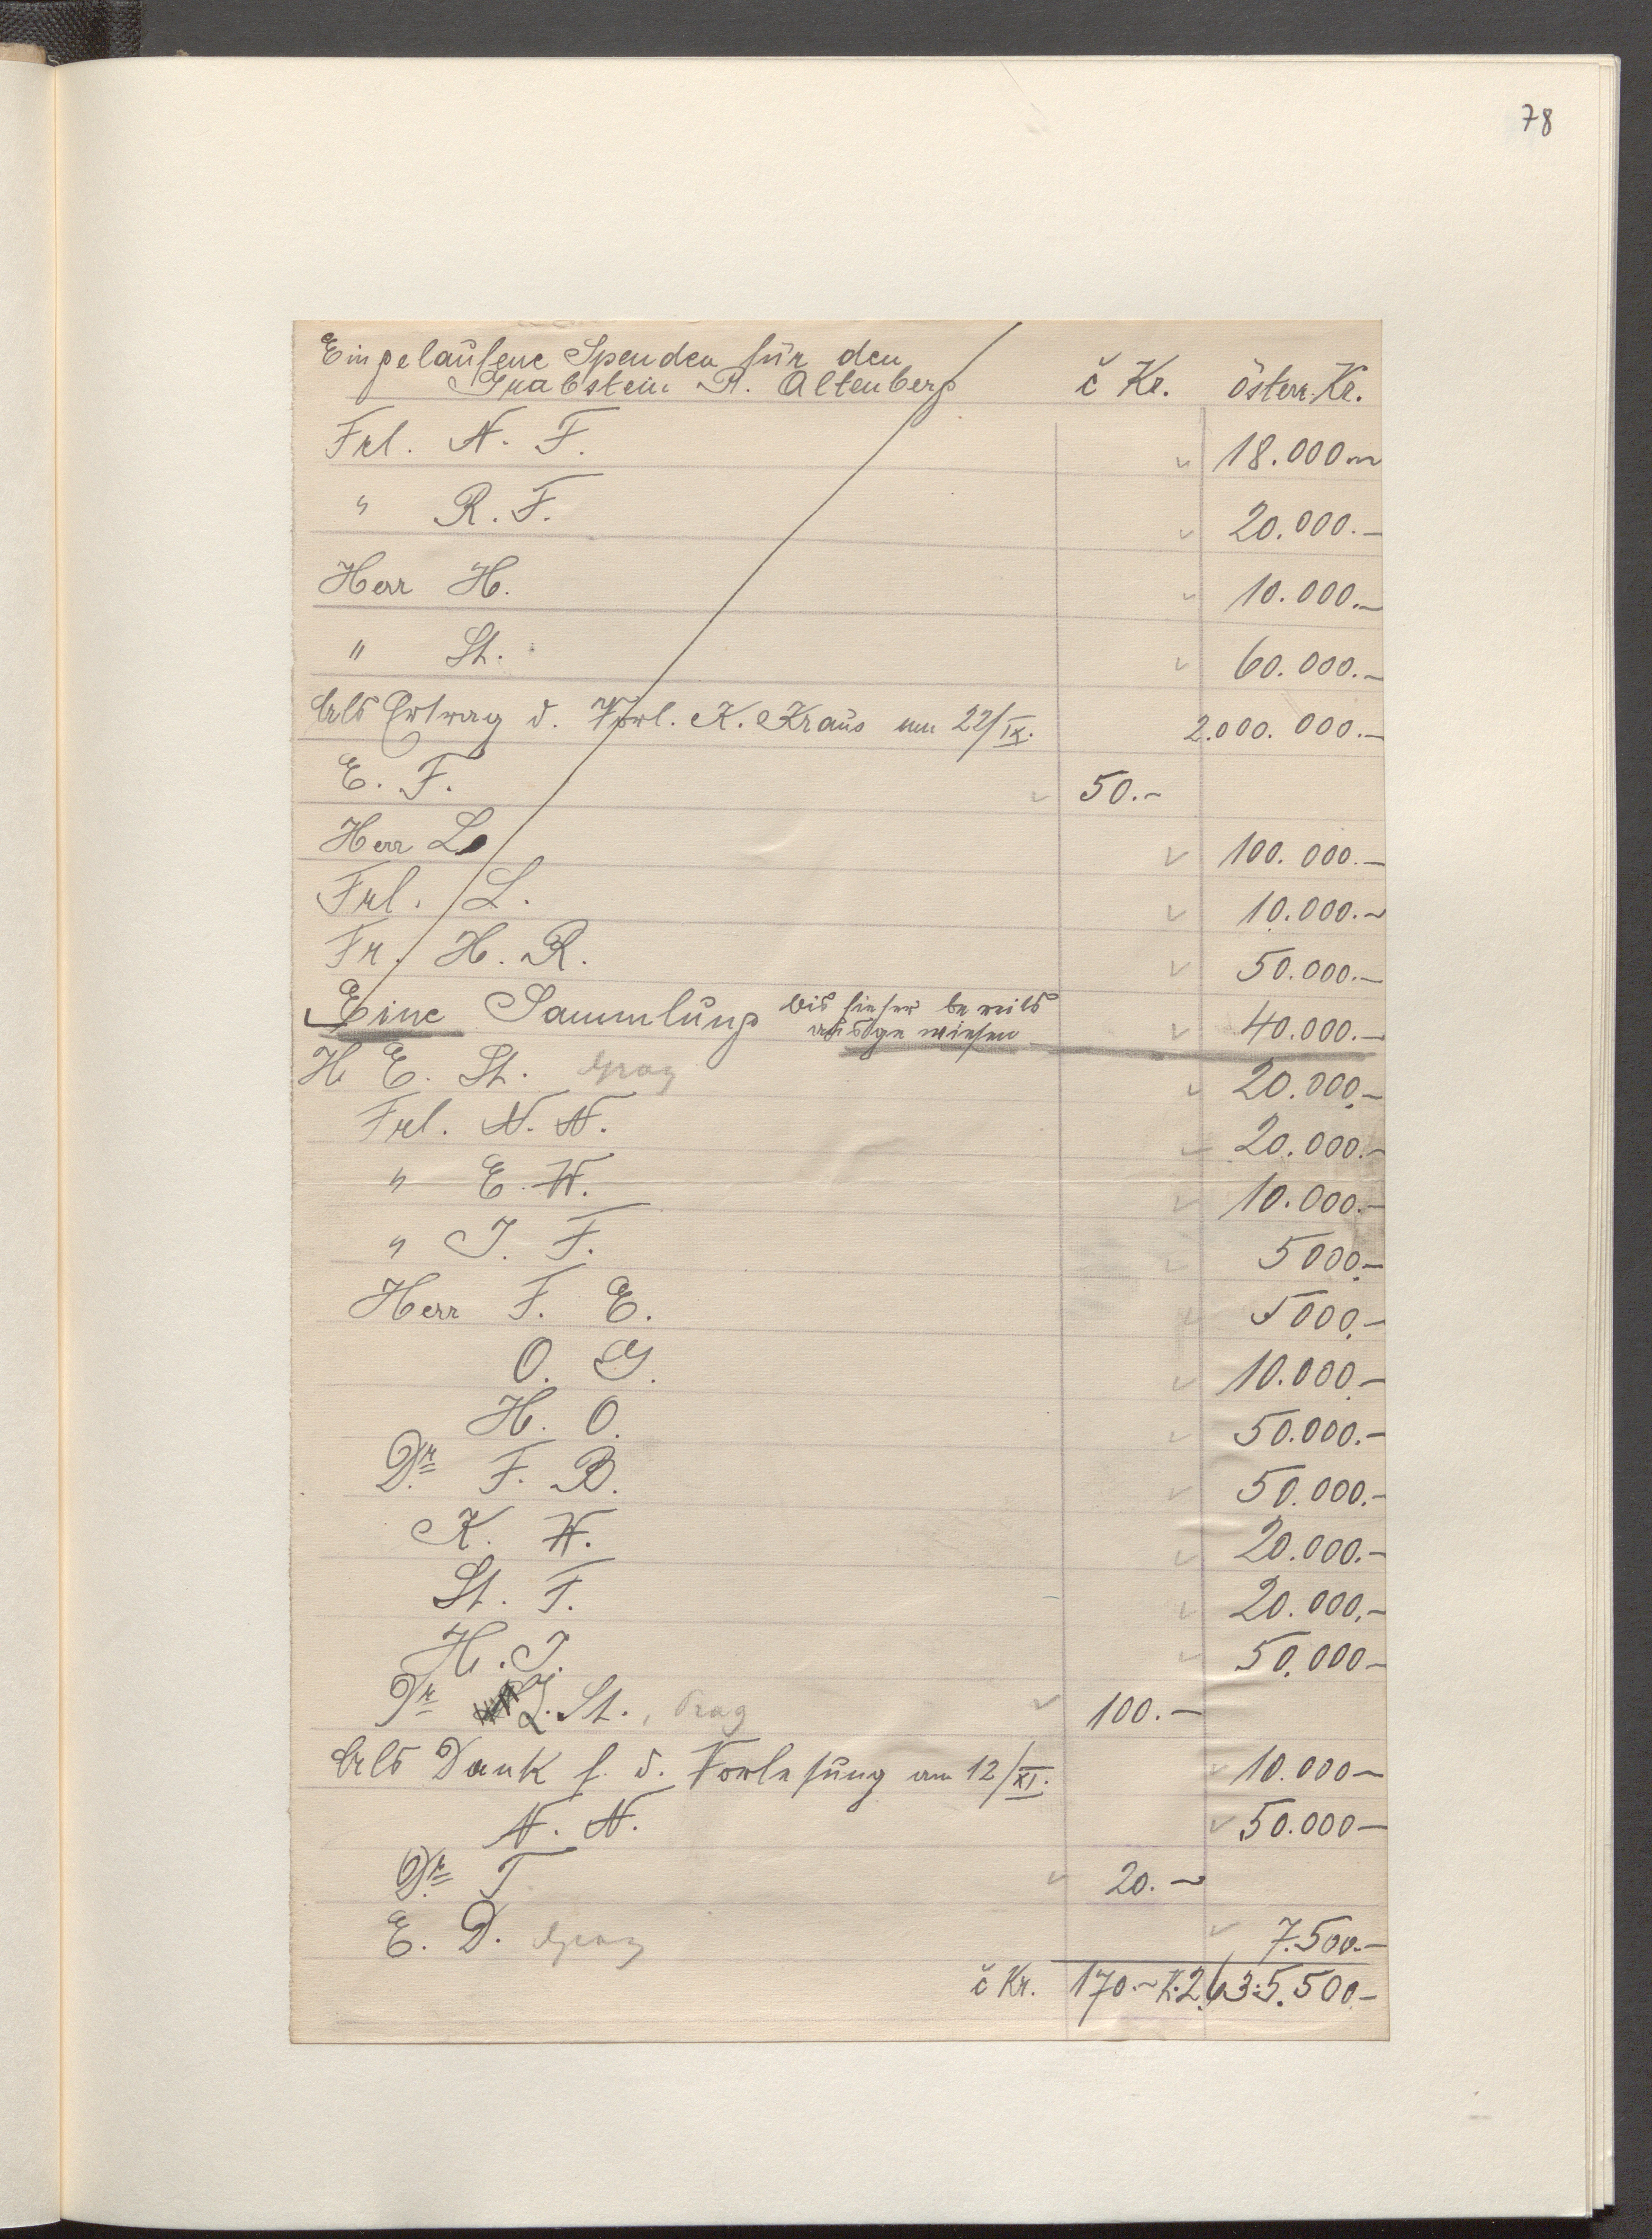 78
Eingelaufene Spenden für den č Kr. österr. Kr.
Grabstein P. Altenberg
Frl. N. F. 18.000.—
" R. F. 20.000.—
Herr H. 10.000.—
" St. 60.000.—
Als Ertrag d. Vorl. K. Kraus am 22/IX. 2.000.000.—
E. F. 50.—
Herr L. 100.000.—
Frl. L. 10.000.—
Fr. H. R. 50.000.—
Eine Sammlung bis hieher bereits 40.000.—
ausgewiesen
H E. St. Graz 20.000.—
Frl. N. N. 20.000.—
" E. W. 10.000.—
" J. F. 5000.—
Herr F. E. 5000.—
O. G. 10.000.—
H. O. 50.000.—
Dr. F. B. 50.000.—
K. W. 20.000.—
St. F. 20.000.—
H. J. 50.000—
Dr St., Prag 100.—
Als Dank f. d. Vorlesung am 12/XI. 10.000—
N. N. 50.000—
Dr. T. 20.—
E. D. Graz 7.500.—
č Kr. 170.— K. 2,635.500.—